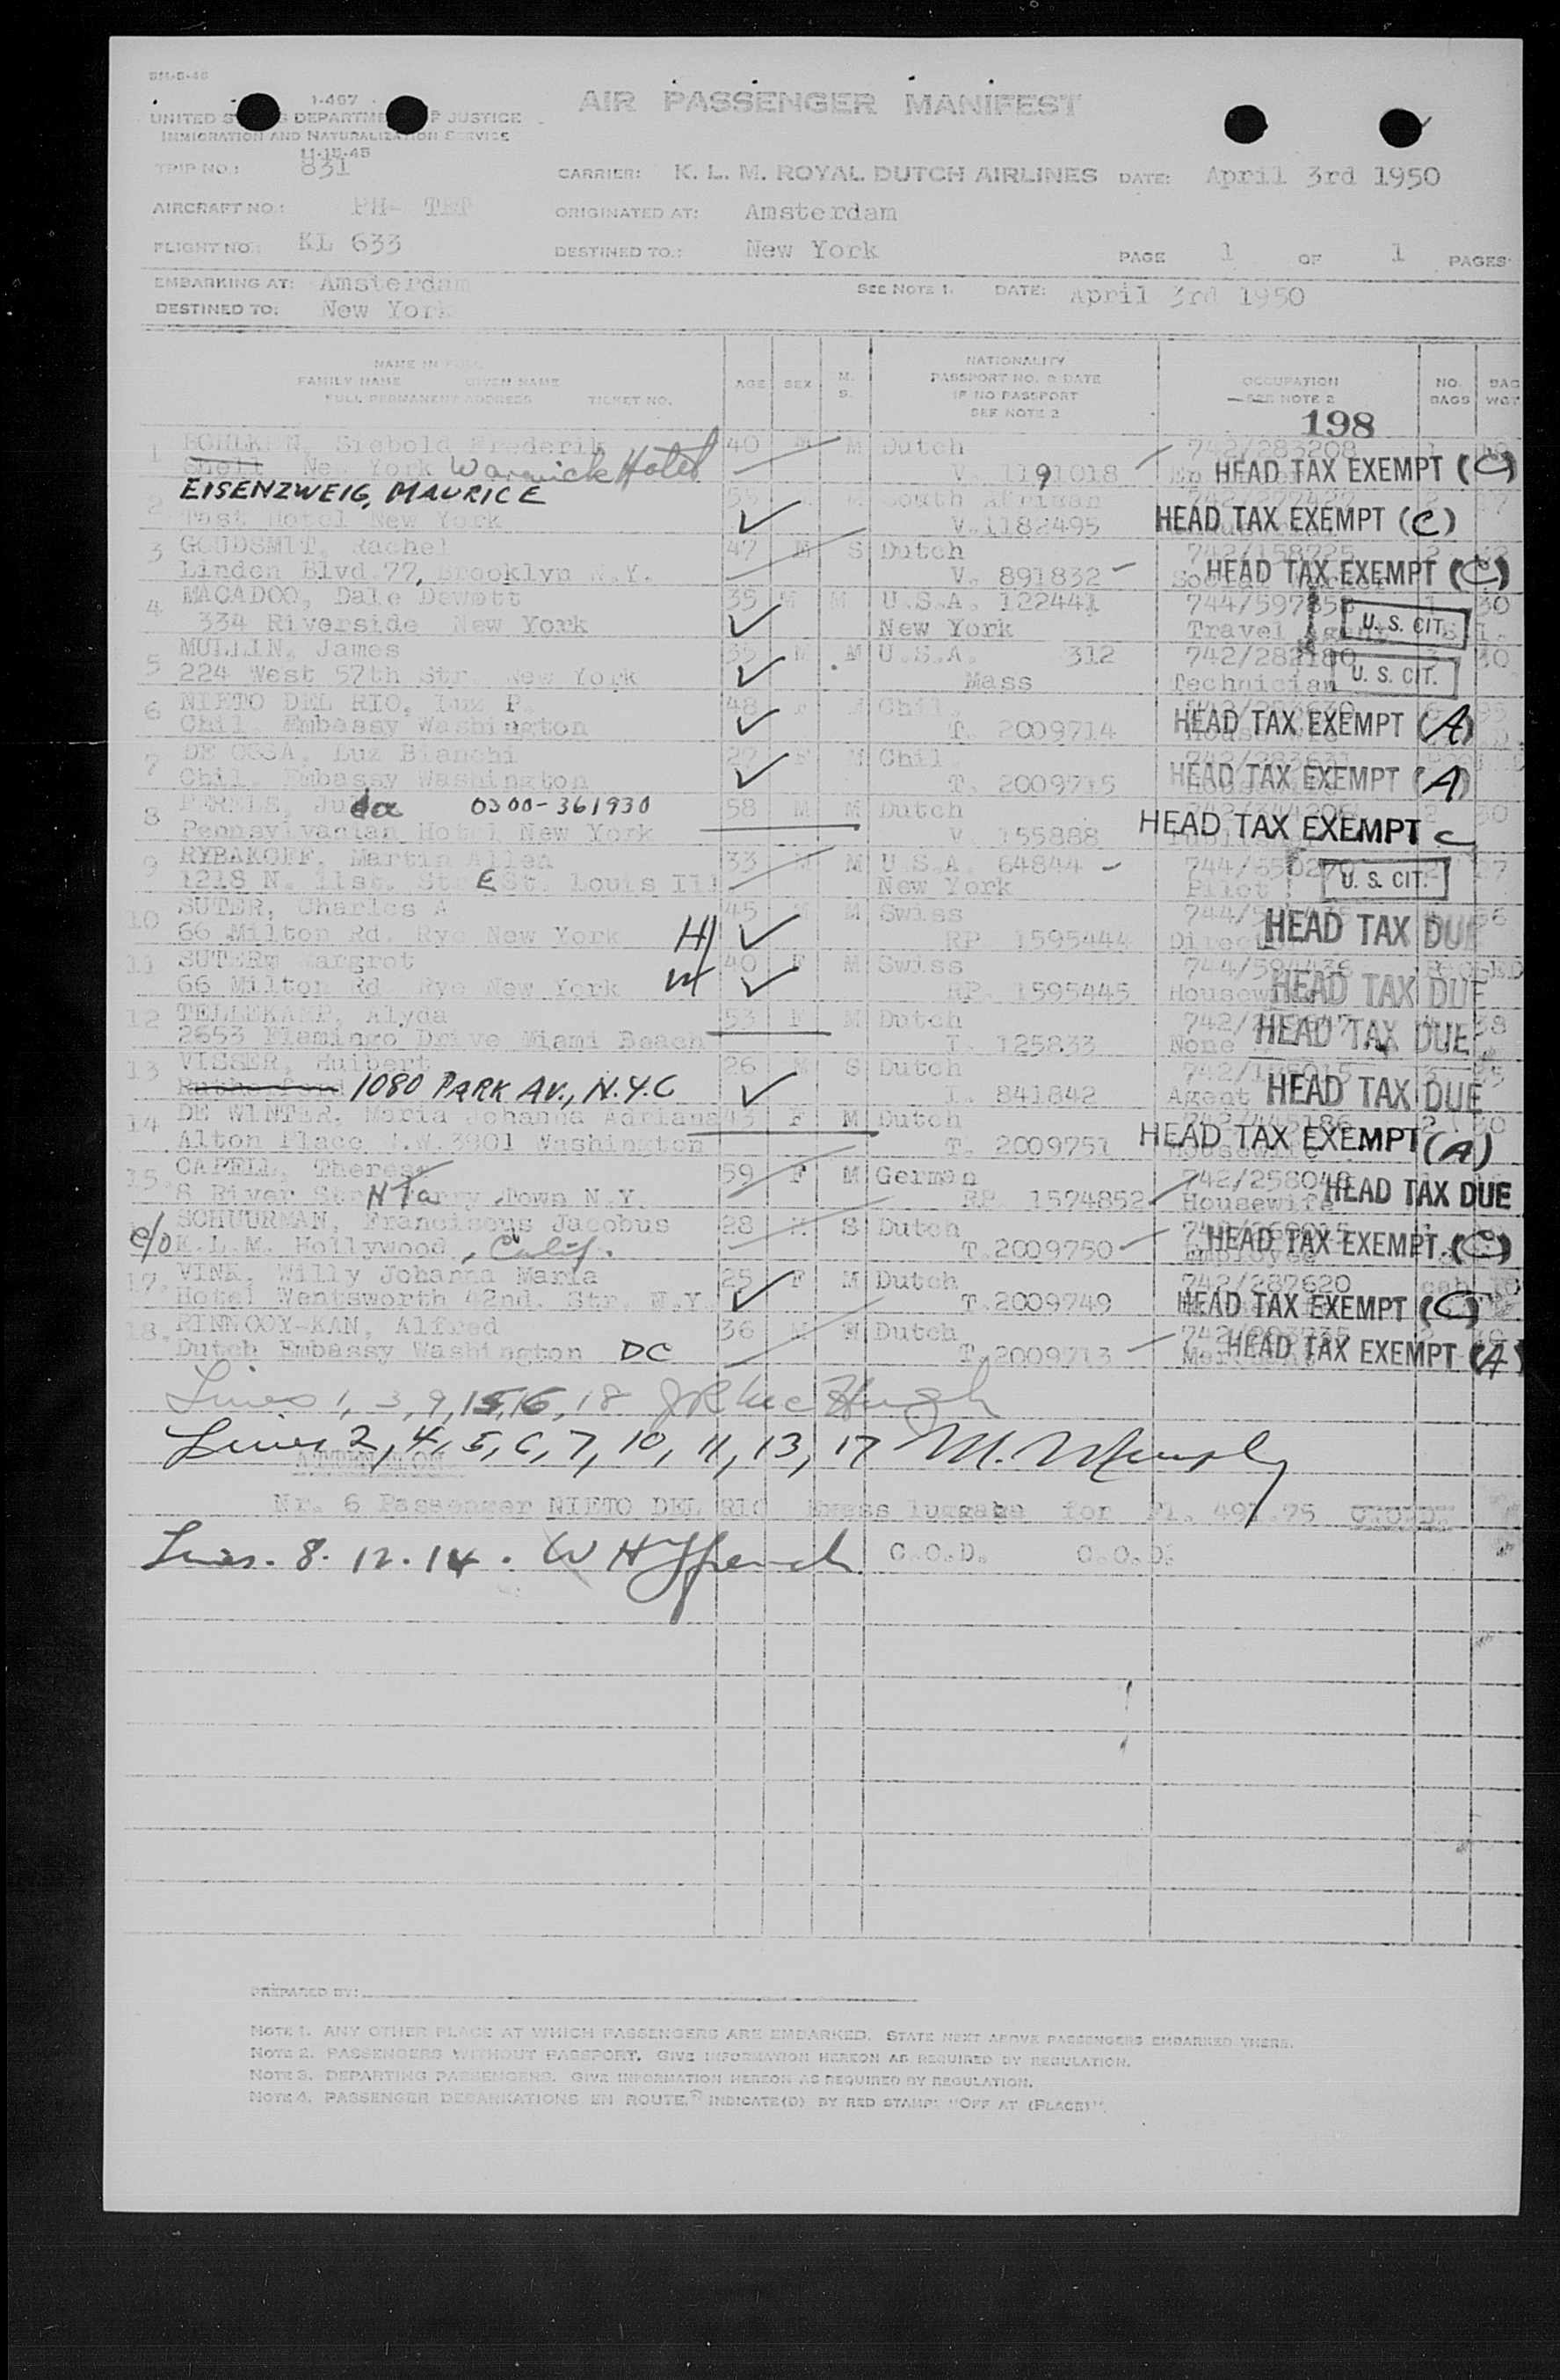 5M-5-46
1-467
UNITED S S DEPARTM F JUSTICE
IMMIGRATION AND NATURALIZATION SERVICE
11-15-45
AIR PASSENGER MANIFEST
TRIP NO.: 831 CARRIER: K. L. M. ROYAL DUTCH AIRLINES DATE: April 3rd 1950
AIRCRAFT NO.: PH- ORIGINATED AT: Amsterdam
FLIGHT NO.: KL 633 DESTINED TO.: New York PAGE 1 OF 1 PAGES
EMBARKING AT: Amsterdam SEE NOTE 1. DATE: April 3rd 1950
DESTINED TO: New York
NAME IN FULL
FAMILY NAME GIVEN NAME
FULL PERMANENT ADDRESS TICKET NO.
AGE SEX M. S.
NATIONALITY
PASSPORT NO. & DATE
IF NO PASSPORT
SEE NOTE 2
OCCUPATION
SEE NOTE 2
NO. BAGS BAG WGT
198
1 Siebold Frederik 40 M M Dutch 742/283208
Shell New York Warwick Hotel V. 1191018 HEAD TAX EXEMPT (C)
2 EISENZWEIG, MAURICE 55 M South African
Taft Hotel New York V.1182495 HEAD TAX EXEMPT (C)
3 GOUDSMIT, Rachel 47 M S Dutch 742/158725 2
Linden Blvd.77, Brooklyn N.Y. V. 891832 HEAD TAX EXEMPT (C)
4 MACADOO, Dale Dewott 35 M M U.S.A. 122441 744/597858 1 30
334 Riverside New York New York Travel Agent U. S. CIT.
5 MULLIN, James 35 M M U.S.A. 312 742/282180 3 30
224 West 57th Str. New York Mass Technician U. S. CIT.
6 NIETO DEL RIO, Luz P. 48 F M Chil. 6 95
Chil. Embassy Washington T. 2009714 HEAD TAX EXEMPT (A)
7 DE OSSA, Luz Bianchi 27 F M Chil. 742/283631
Chil. Embassy Washington T. 2009715 HEAD TAX EXEMPT (A)
8 PERELS, Juda 0300-361930 58 M M Dutch 2 30
Pennsylvanian Hotel New York V. 155888 HEAD TAX EXEMPT C
9 RYBAKOFF, Martin Allen 33 M M U.S.A. 64844 744/650270 2 27
1218 N. 11st. Str. E St. Louis Ill New York Pilot U. S. CIT.
10 SUTER, Charles A 45 M M Swiss 56
66 Milton Rd. Rye New York H RP 1595444 HEAD TAX DUE
11 SUTER, Margrot 40 F M Swiss 744/594436
66 Milton Rd Rye New York W RP. 1595445 Housewife HEAD TAX DUE
12 TELLEKAMP, Alyda 53 F M Dutch 38
2653 Flamingo Drive Miami Beach T. 125833 None HEAD TAX DUE
13 VISSER, Huibert 26 M S Dutch 3
Rutherford 1080 PARK AV., N.Y.C T. 841842 Agent HEAD TAX DUE
14 DE WINTER, Maria Johanna Adriana 43 F M Dutch 742/445186 2 30
Alton Place N.W.3901 Washington T. 2009751 HEAD TAX EXEMPT (A)
15. CAPELL, Therese 59 F M German 742/258048
8 River Str N Tarry Town N.Y. RP. 1574852 Housewife HEAD TAX DUE
SCHUURMAN, Franciscus Jacobus 28 M S Dutch
c/o K.L.M. Hollywood, Calif. T.2009750 Employee HEAD TAX EXEMPT (C)
17. VINK, Willy Johanna Maria 25 F M Dutch 742/287620
Hotel Wentsworth 42nd. Str. N.Y. T.2009749 HEAD TAX EXEMPT (C)
18. RINNOOY-KAN, Alfred 36 M M Dutch
Dutch Embassy Washington DC T.2009713 HEAD TAX EXEMPT (A)
Lines 1, 3, 9, 15, 16, 18 J R McHugh
Lines 2, 4, 5, 6, 7, 10, 11, 13, 17 M. Murphy
ATTENTION
Nr. 6 Passenger NIETO DEL RIO Exess luggage for Fl. 491.75 C.O.D.
Lines. 8. 12. 14. C.O.D. C.O.D.
PREPARED BY:
NOTE 1. ANY OTHER PLACE AT WHICH PASSENGERS ARE EMBARKED. STATE NEXT ABOVE PASSENGERS EMBARKED THERE.
NOTE 2. PASSENGERS WITHOUT PASSPORT. GIVE INFORMATION HEREON AS REQUIRED BY REGULATION.
NOTE 3. DEPARTING PASSENGERS. GIVE INFORMATION HEREON AS REQUIRED BY REGULATION.
NOTE 4. PASSENGER DEBARKATIONS EN ROUTE. INDICATE(D) BY RED STAMP: "OFF AT (PLACE)".